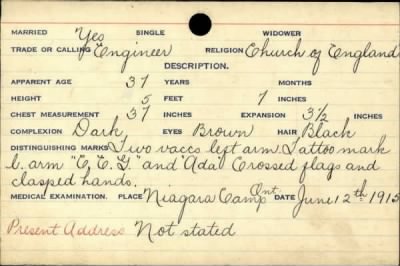 MARRIED Yes SINGLE WIDOWER
TRADE OR CALLING Engineer RELIGION Church of England
DESCRIPTION.
APPARENT AGE 37 YEARS MONTHS
HEIGHT 5 FEET 7 INCHES
CHEST MEASUREMENT 37 INCHES EXPANSION 3½ INCHES
COMPLEXION Dark EYES Brown HAIR Black
DISTINGUISHING MARKS Two vaccs left arm. Tattoo mark
l. arm "E.E.G." and "Ada" Crossed flags and
clasped hands.
MEDICAL EXAMINATION. PLACE Niagara Camp Ont. DATE June 12th 1915
Present Address Not stated